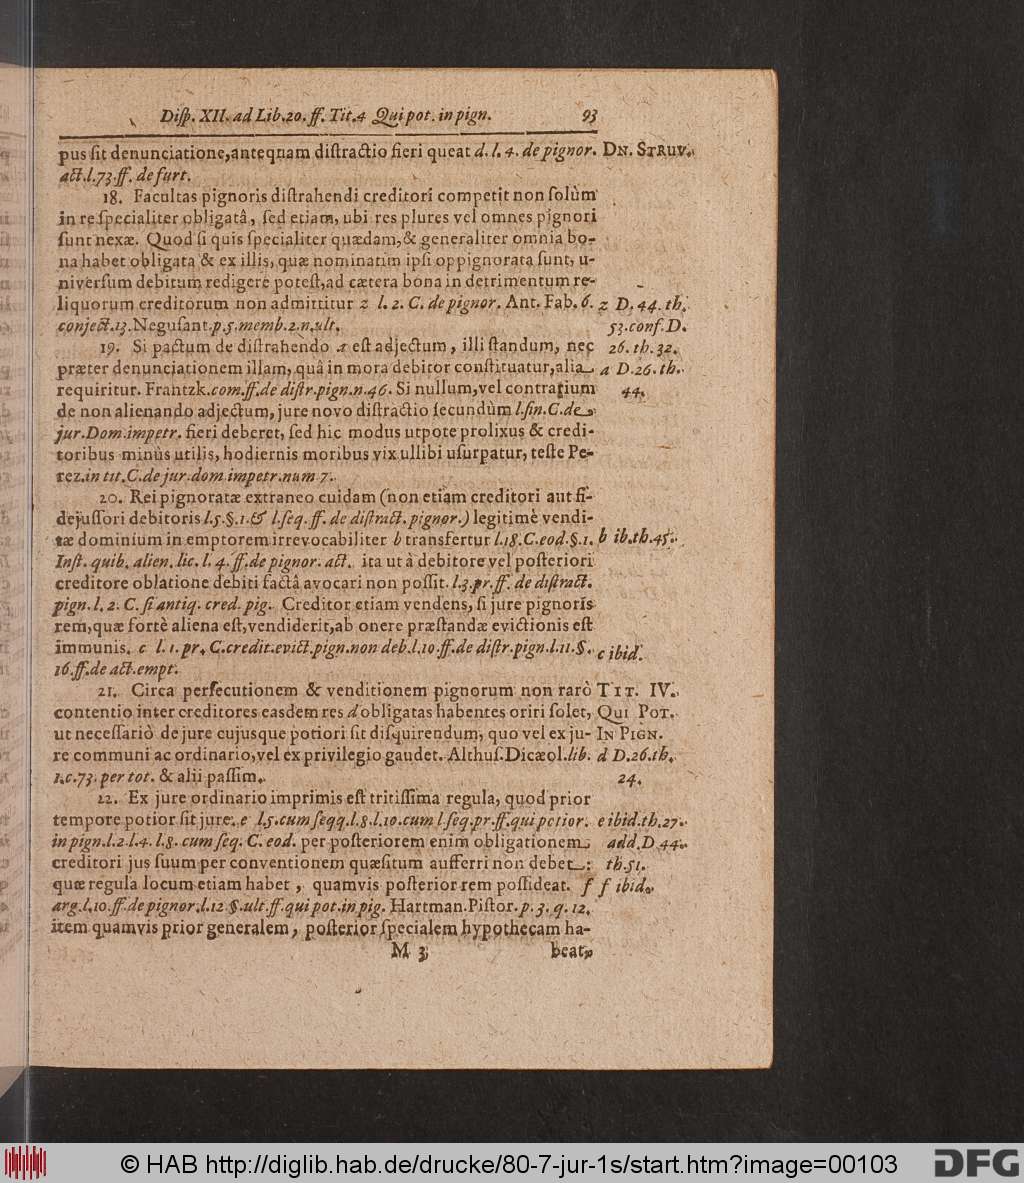 Disp. XII. ad Lib. 20. ff. Tit. 4 Qui pot. in pign. 93
pus sit denunciatione, antequam distractio fieri queat d. l. 4. de pignor. DN. STRUV.
act. l. 73. ff. de furt.
18. Facultas pignoris distrahendi creditori competit non solùm
in re specialiter obligatâ, sed etiam, ubi res plures vel omnes pignori
sunt nexæ. Quod si quis specialiter quædam, & generaliter omnia bo-
na habet obligata & ex illis, quæ nominatim ipsi oppignorata sunt, u-
niversum debitum redigere potest, ad cætera bona in detrimentum re-
liquorum creditorum non admittitur z l. 2. C. de pignor. Ant. Fab. 6. z D. 44. th.
conject. 13. Negusant. p. 5. memb. 2. n. ult. 53. conf. D.
19. Si pactum de distrahendo a est adjectum, illi standum, nec 26. th. 32.
præter denunciationem illam, quâ in mora debitor constituatur, alia a D. 26. th.
requiritur. Frantzk. com. ff. de distr. pign. n. 46. Si nullum, vel contrarium 44.
de non alienando adjectum, jure novo distractio secundùm l. fin. C. de
jur. Dom. impetr. fieri deberet, sed hic modus utpote prolixus & credi-
toribus minùs utilis, hodiernis moribus vix ullibi usurpatur, teste Pe-
rez. in tit. C. de jur. dom. impetr. num 7.
20. Rei pignoratæ extraneo cuidam (non etiam creditori aut fi-
dejussori debitoris l. 5. §. 1. & l. seq. ff. de distract. pignor.) legitimè vendi-
tæ dominium in emptorem irrevocabiliter b transfertur l. 18. C. eod. §. 1. b ib. th. 45.
Inst. quib. alien. lic. l. 4. ff. de pignor. act. ita ut à debitore vel posteriori
creditore oblatione debiti factâ avocari non possit. l. 3. pr. ff. de distract.
pign. l. 2. C. si antiq. cred. pig. Creditor etiam vendens, si jure pignoris
rem, quæ fortè aliena est, vendiderit, ab onere præstandæ evictionis est
immunis. c l. 1. pr. C. credit. evict. pign. non deb. l. 10. ff. de distr. pign. l. 11. §. c ibid.
16. ff. de act. empt.
21. Circa persecutionem & venditionem pignorum non rarò TIT. IV.
contentio inter creditores easdem res d obligatas habentes oriri solet, QUI POT.
ut necessariò de jure cujusque potiori sit disquirendum, quo vel ex ju- IN PIGN.
re communi ac ordinario, vel ex privilegio gaudet. Althus. Dicæol. lib. d D. 26. th.
1. c. 73. per tot. & alii passim. 24.
22. Ex jure ordinario imprimis est tritissima regula, quod prior
tempore potior sit jure. e l. 5. cum seqq. l. 8. l. 10. cum l. seq. pr. ff. qui potior. e ibid. th. 27.
in pign. l. 2. l. 4. l. 8. cum seq. C. eod. per posteriorem enim obligationem add. D 44.
creditori jus suum per conventionem quæsitum aufferri non debet: th. 51.
quæ regula locum etiam habet, quamvis posterior rem possideat. f f ibid.
arg. l. 10. ff. de pignor. l. 12 §. ult. ff. qui pot. in pig. Hartman. Pistor. p. 3. q. 12.
item quamvis prior generalem, posterior specialem hypothecam ha-
M 3 beat,
© HAB http://diglib.hab.de/drucke/80-7-jur-1s/start.htm?image=00103 DFG